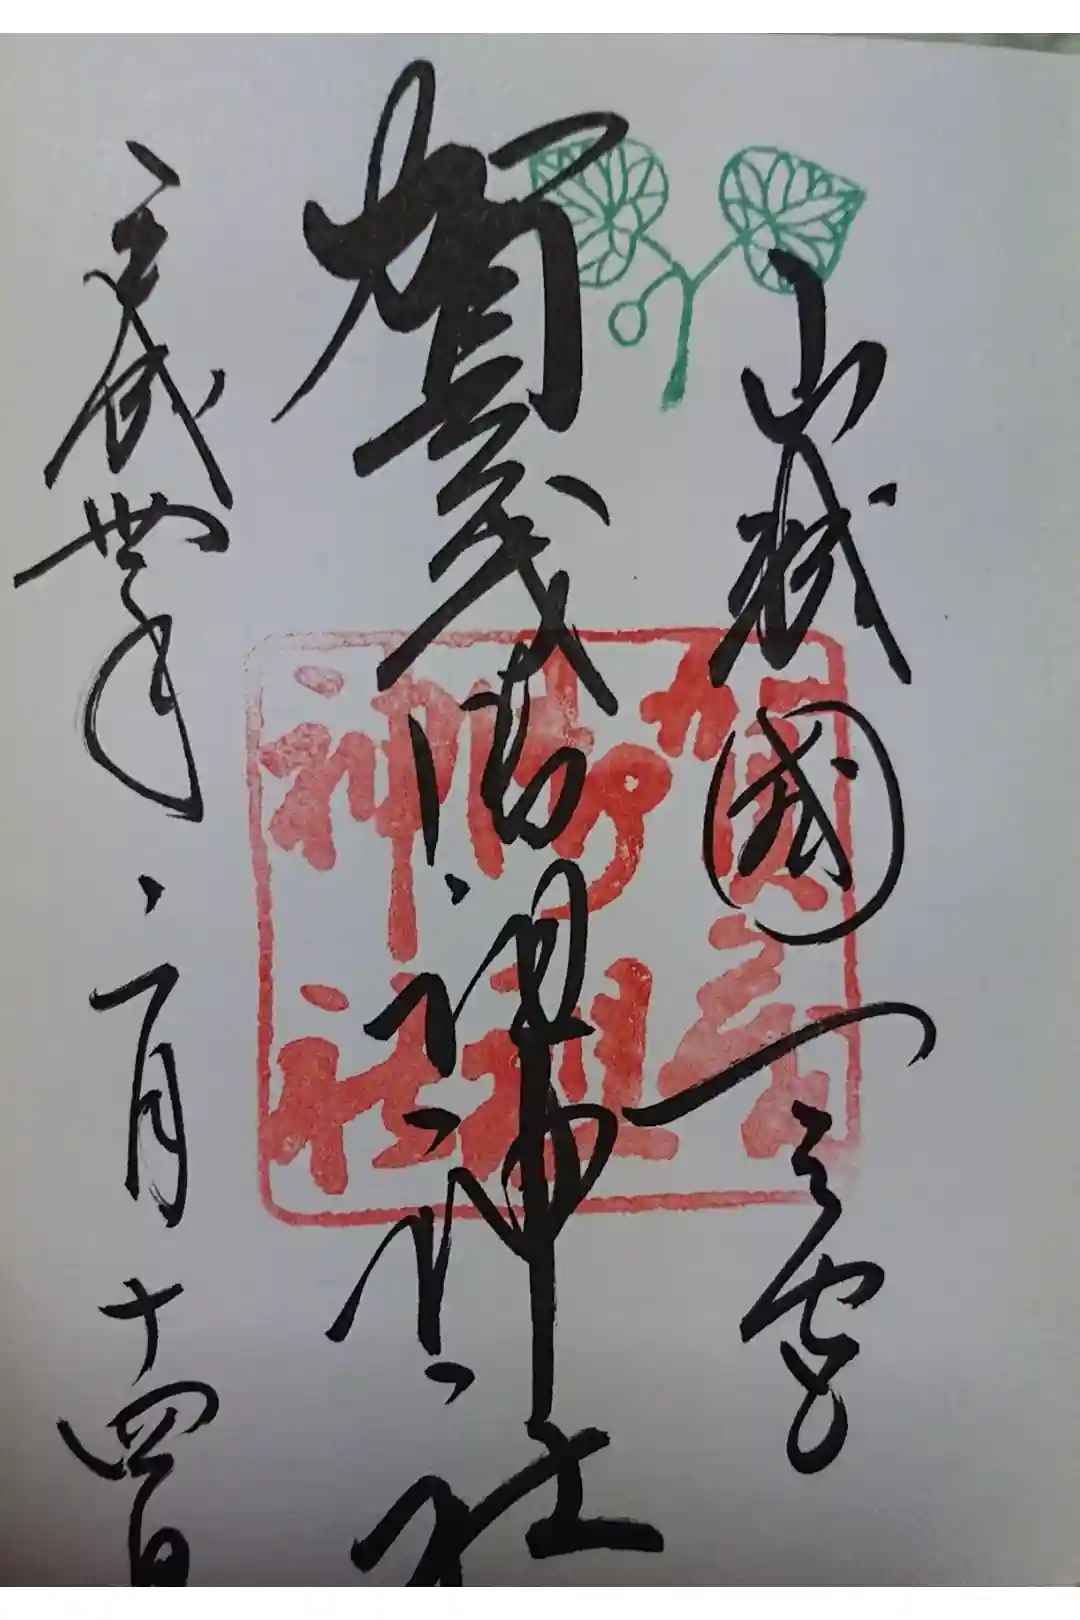 山城國一之宮
賀茂御祖神社
平成丗年二月十四日
賀茂
御祖
神社